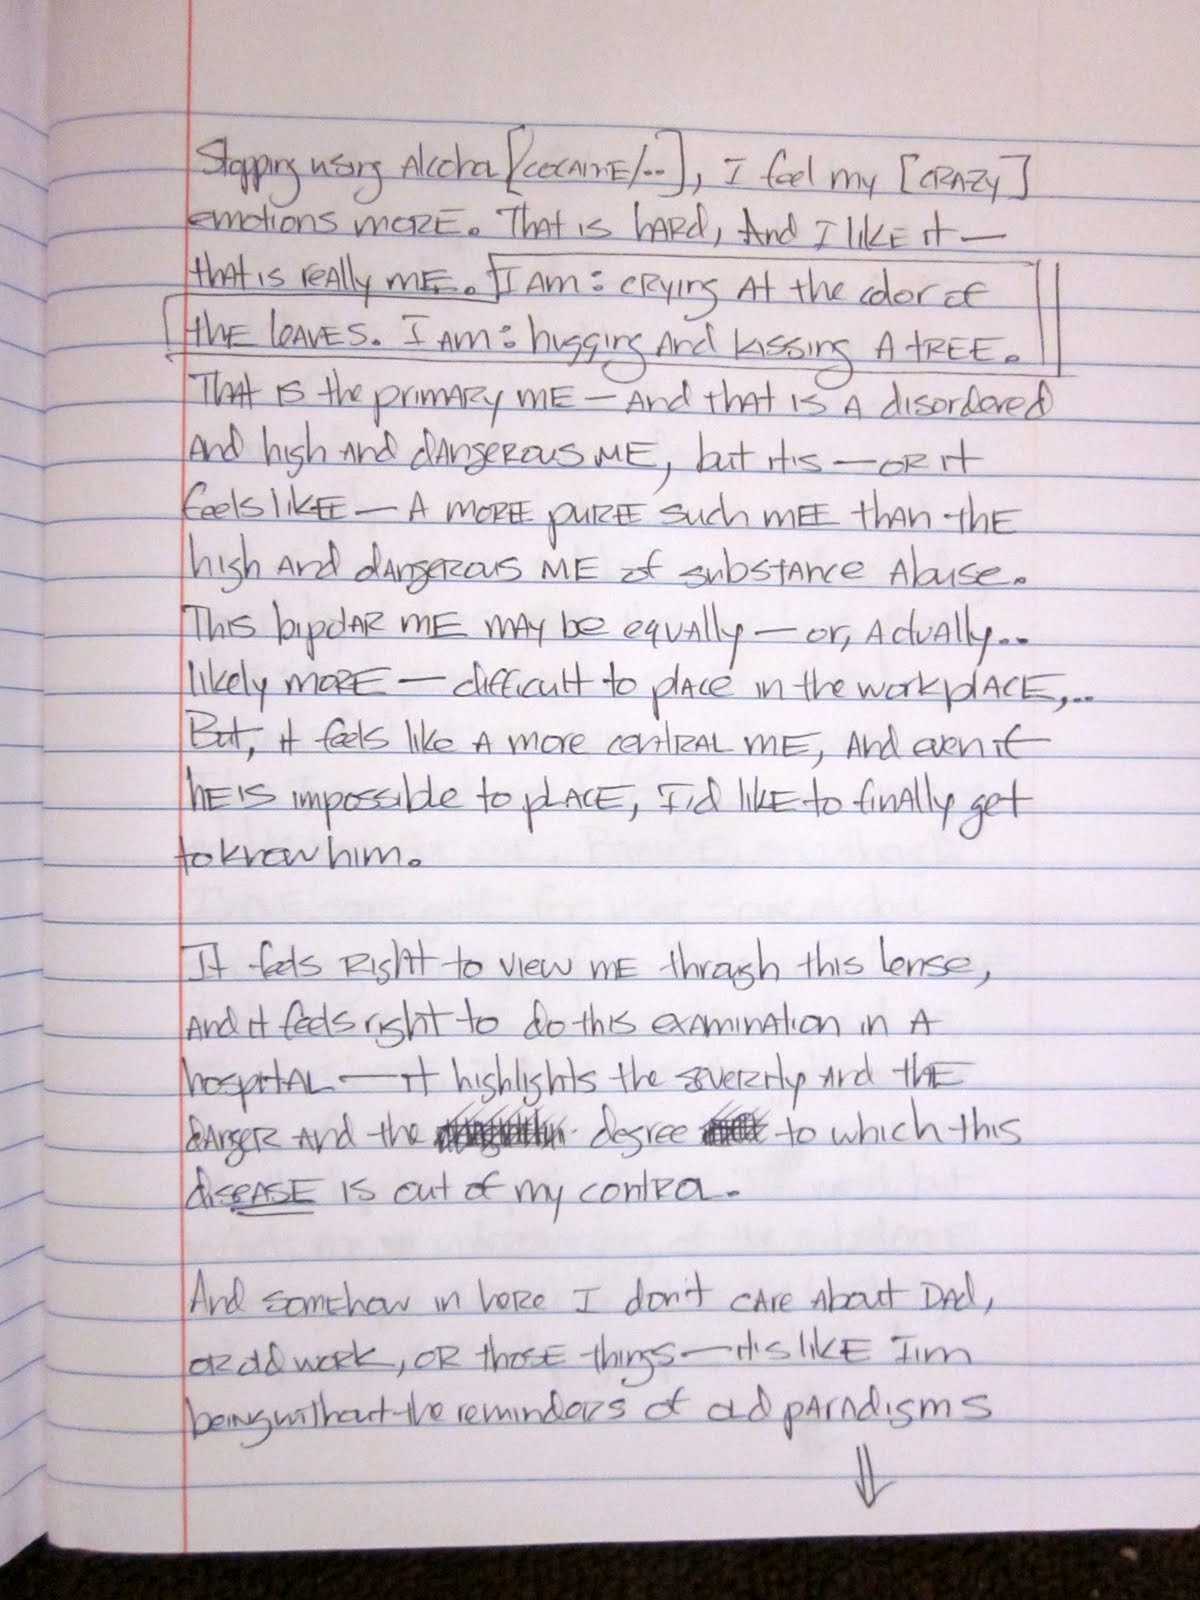 Stopping using Alcohol [COCAINE/..], I feel my [CRAZY]
emotions MORE. That is hard, And I like it —
that is really ME. I AM: CRYING At the color of
the LEAVES. I AM: hugging And kissing A tREE.
That is the primary ME — And that is A disordered
And high And dangerous ME, but it is — OR it
feels like — A MORE pure such MEE than the
high And dangerous ME of substance Abuse.
This bipolar ME may be equally — or, Actually..
likely MORE — difficult to place in the workplace,..
But, it feels like A more central ME, And even if
he is impossible to place, I'd like to finally get
to know him.
It feels Right to view ME through this lense,
And it feels right to do this examination in A
hospital — it highlights the severity And the
danger And the degree to which this
disEASE is out of my control.
And somehow in here I don't care About Dad,
OR old work, OR those things — it's like I'm
being without the reminders of old paradigms